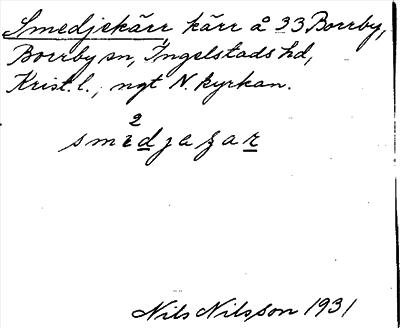 Smedjekärr, kärr å 33 Borrby,
Borrby sn, Ingelstads hd,
Krist. l., ngt N. kyrkan.
2
Nils Nilsson 1931